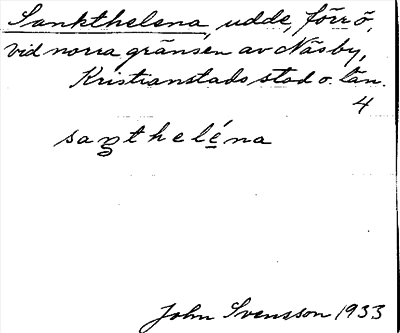 Sankthelena, udde, förr ö,
vid norra gränsen av Näsby,
Kristianstads stad o. län.
4
saŋthelé̱na
John Svensson 1933